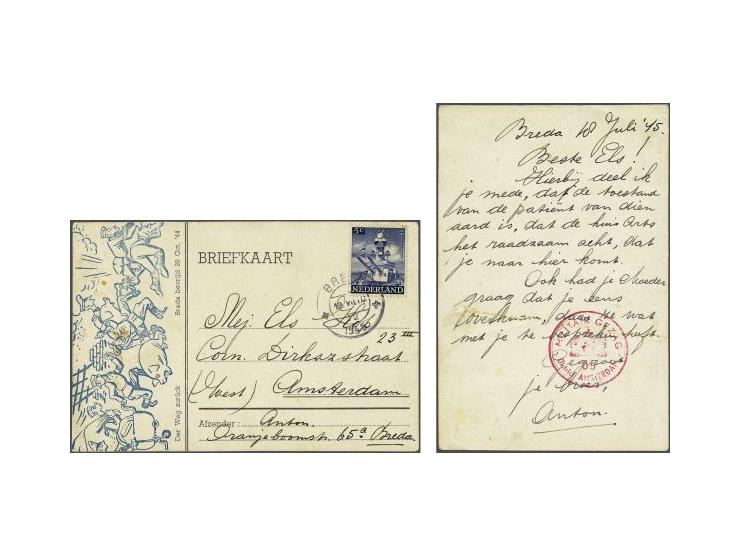 Der Weg zurück
Breda bevrijd 29 Oct. '44
BRIEFKAART
5c
NEDERLAND
BRE
1945
Mej. Els
23 III
Corn. Dirkszstraat
(West) Amsterdam
Afzender: Anton.
Oranjeboomstr. 65a Breda.
Breda 18 Juli '45.
Beste Els!
Hierbij deel ik
je mede, dat de toestand
van de patiënt van dien
aard is, dat de huis Arts
het raadzaam acht, dat
je naar hier komt.
Ook had je Moeder
graag dat je eens
overkwam, daar ze wat
met je te bespreken heeft.
je
Anton.
MILITAIR GEZAG
65
District AMSTERDAM